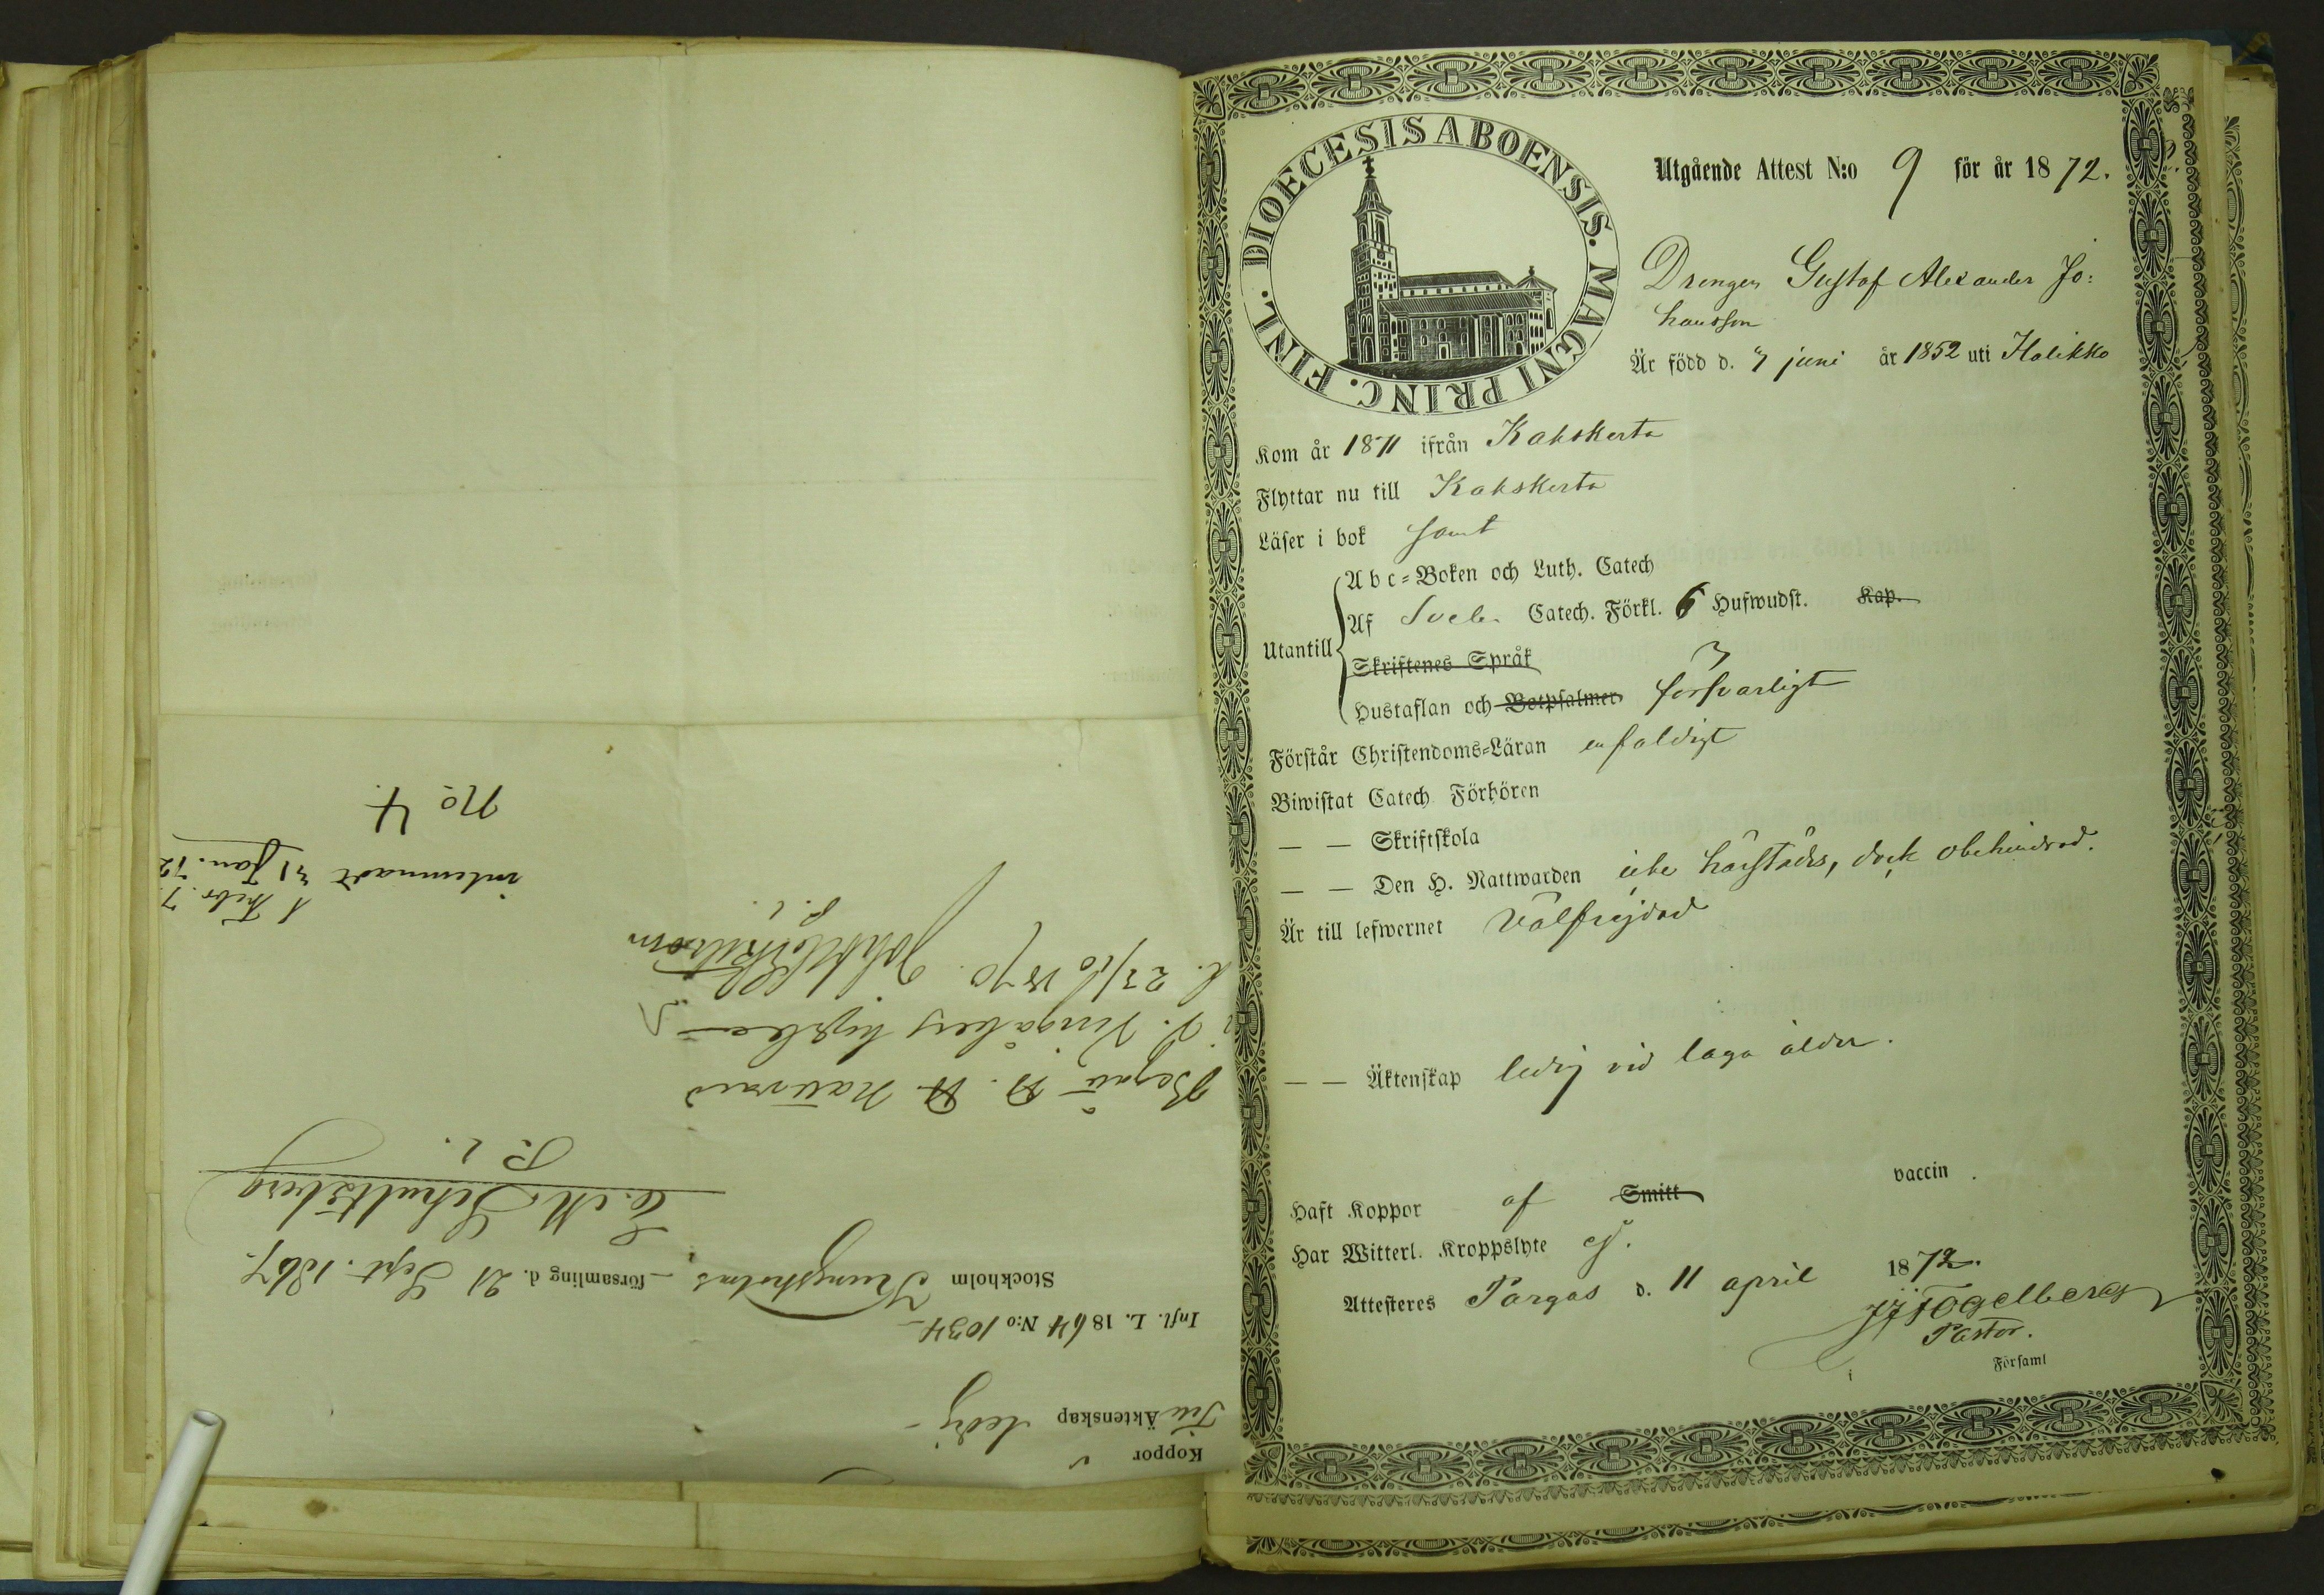 Koppor
Till Äktenskap ledig
Infl. L. 1864 N:o 1034
Stockholm Kungsholms församling d. 21 Sept. 1867.
C. M. Schultzberg
P. l.
Begått H. H. Nattvard
d. 23/10 1870.
No 4
inlemnadt 31 Jan. 72
1 Febr. 7
DIOECESIS ABOENSIS. MAGNI PRINC. FINL.
Utgående Attest N:o 9 för år 1872.
Drengen Gustaf Alexander Jo:
hansson
Är född d. 7 juni år 1852 uti Halikko
Kom år 1871 ifrån Kakskerta
Flyttar nu till Kakskerta
Läser i bok samt
Utantill
Abc=Boken och Luth. Catech
Af Sveb. Catech. Förkl. 6 Hufwudst. Kap.
Skriftenes Språk
Hustaflan och Botpsalmer försvarligt
Förstår Christendoms=Läran enfaldigt
Biwistat Catech Förhören
— — Skriftskola
— — Den H. Nattwarden icke härstädes, dock obehindrad.
Är till lefwernet välfrejdad
— — Äktenskap ledig vid laga ålder.
Haft Koppor af Smitt vaccin
Har Witterl. Kroppslyte ej.
Attesteres Pargas d. 11 april 1872.
JJ Fogelberg
Pastor.
i Församl